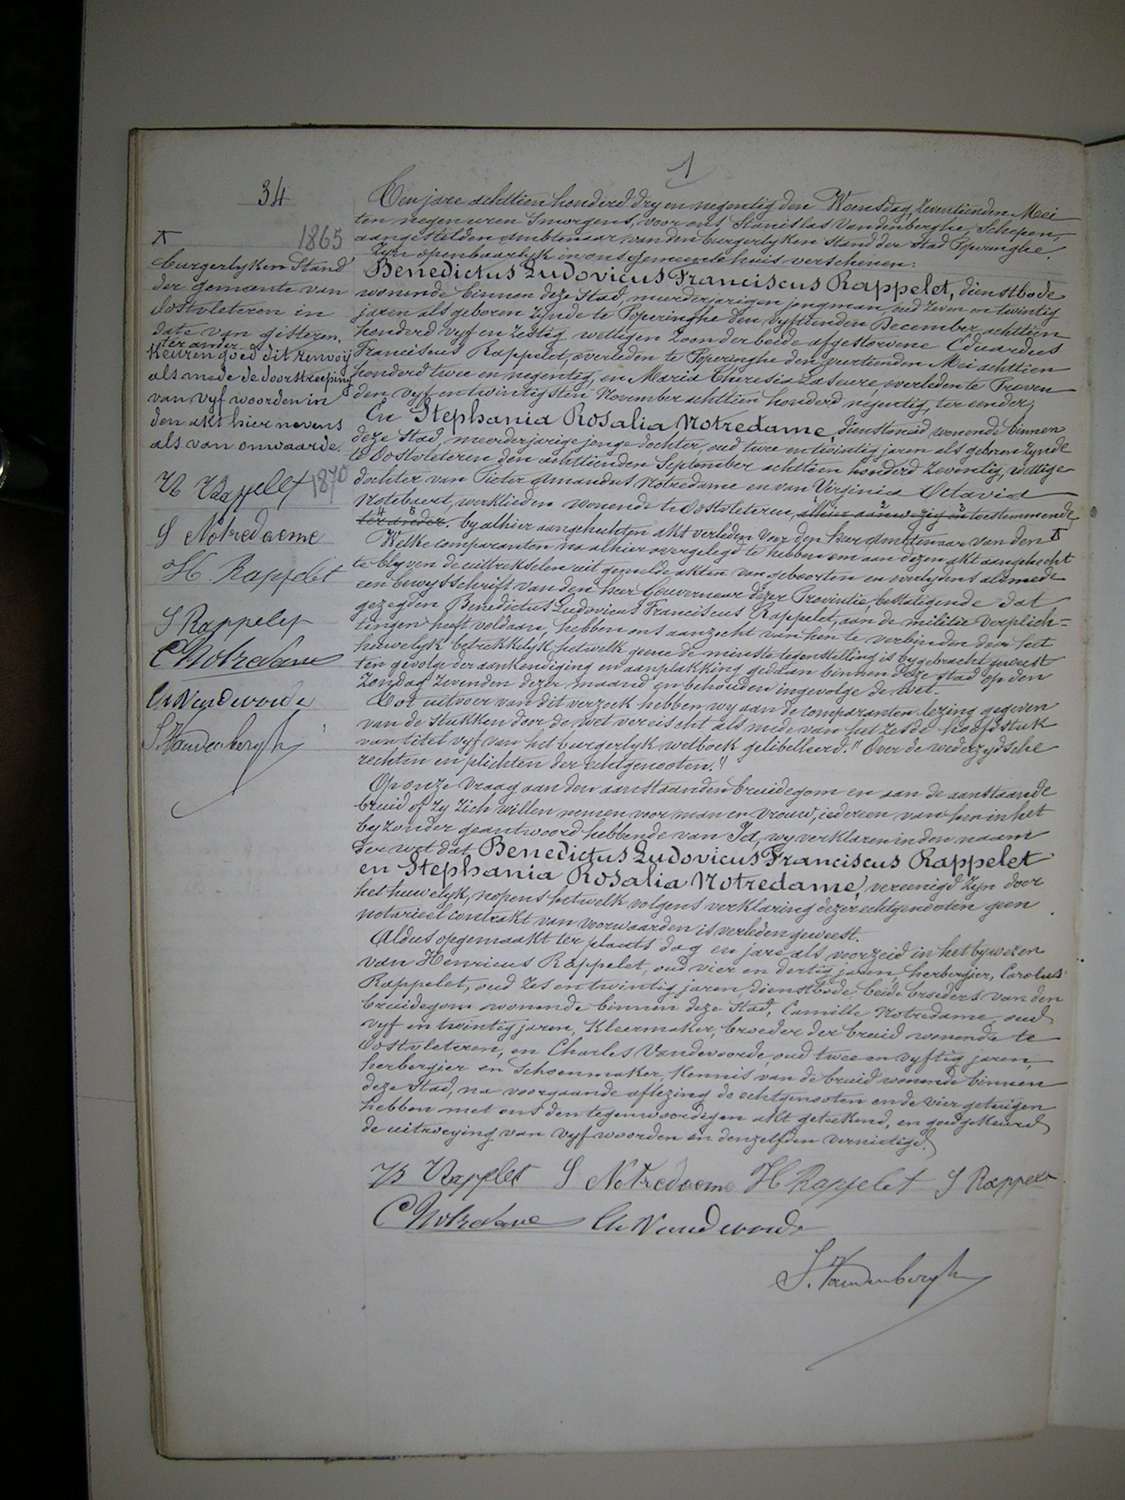 1
34
Ten jare achttien honderd dry en negentig den Woensdag, Zeventienden Mei
ten negen uren smorgens, voor ons Stanislas Vandenberghe, Schepen,
aangestelden ambtenaar van den burgerlyken Stand der Stad Poperinghe.
Zyn openbaarlyk in ons gemeentehuis verschenen:
Benedictus Ludovicus Franciscus Rappelet, dienstbode
wonende binnen deze Stad, meerderjarigen jongman, oud Zeven en twintig
jaren als geboren zynde te Poperinghe den vyftienden December achttien
honderd vyf en Zestig, wettigen Zoon der beide afgestorvene Eduardus
Franciscus Rappelet, overleden te Poperinghe den veertienden Mei achttien
honderd twee en negentig, en Maria Theresia Laseure, overleden te Proven
den vyf en twintigsten November achttien honderd negentig, ter eender;
En Stephania Rosalia Notredame, dienstmeid wonende binnen
deze Stad, meerderjarige jonge dochter, oud twee en twintig jaren als geboren zynde
te Oostvleteren den achttienden September achttien honderd Zeventig, wettige
dochter van Pieter Amandus Notredame en van Virginia Octavia
Notebaert, werklieden wonende te Oostvleteren, alhier aanwezig en toestemmende
ter ander. by alhier aangehechten akt verleden voor den heer Ambtenaar van den
Welke comparanten na alhier overgelegd te hebben om aan dezen akt aangehecht
te blyven de uittrekselen uit gemelde akten van geboorten en overlydens alsmede
een bewysschrift van den heer Gouverneur dezer Provintie bestatigende dat
gezegden Benedictus Ludovicus Franciscus Rappelet, aan de militie verplich=
tingen heeft voldaan, hebben ons aanzocht van hen te verbinden door het
huwelyk betrekkelyk hetwelk geene de minste tegenstelling is bygebracht geweest
ten gevolge der aankondiging en aanplakking gedaan binnen deze stad op den
Zondag Zevenden dezer maand en behouden ingevolge de wet.
Tot uitvoer van dit verzoek hebben wy aan de comparanten lezing gegeven
van de stukken door de wet vereischt als mede van het Zesde hoofdstuk
van titel vyf van het burgerlyk wetboek gelibelleerd: "Over de wederzydsche
rechten en plichten der echtgenooten."
Op onze vraag aan den aanstaanden bruidegom en aan de aanstaande
bruid of zy zich willen nemen voor man en vrouw, iedereen van hen in het
byzonder geantwoord hebbende van Ja, wy verklaren in den naam
der wet dat Benedictus Ludovicus Franciscus Rappelet
en Stephania Rosalia Notredame, vereenigd zyn door
het huwelyk, nopens hetwelk volgens verklaring dezer echtgenooten geen
notarieel contrakt van voorwaarden is verleden geweest.
Aldus opgemaakt ter plaats dag en jare als voorzeid in het bywezen
van Henricus Rappelet, oud vier en dertig jaren, herbergier, Carolus
Rappelet, oud Zes en twintig jaren, dienstbode beide broeders van den
bruidegom wonende binnen deze stad, Camille Notredame, oud
vyf en twintig jaren, Kleermaker, broeder der bruid wonende te
Oostvleteren, en Charles Vandevoorde, oud twee en vyftig jaren,
herbergier en Schoenmaker, Kennis van de bruid wonende binnen
deze Stad, na voorgaande aflezing de echtgenooten en de vier getuigen
hebben met ons den tegenwoordigen akt geteekend, en goedgekeurd
de uitveging van vyf woorden in denzelfden vernietigd.
B Rappelet S Notredaeme H Rappelet
C Notredame Ch Vandevoorde
S. Vandenberghe
1865
burgerlyken Stand
der gemeente van
Oostvleteren in
date van gisteren,
ter ander
Keuren goed dit renvoy
als mede de doorstreeping
van vyf woorden in
den akt hier nevens
als van onwaarde.
B Rappelet 1870
S Notredaeme
H Rappelet
C Notredame
Ch Vandevoorde
S. Vandenberghe